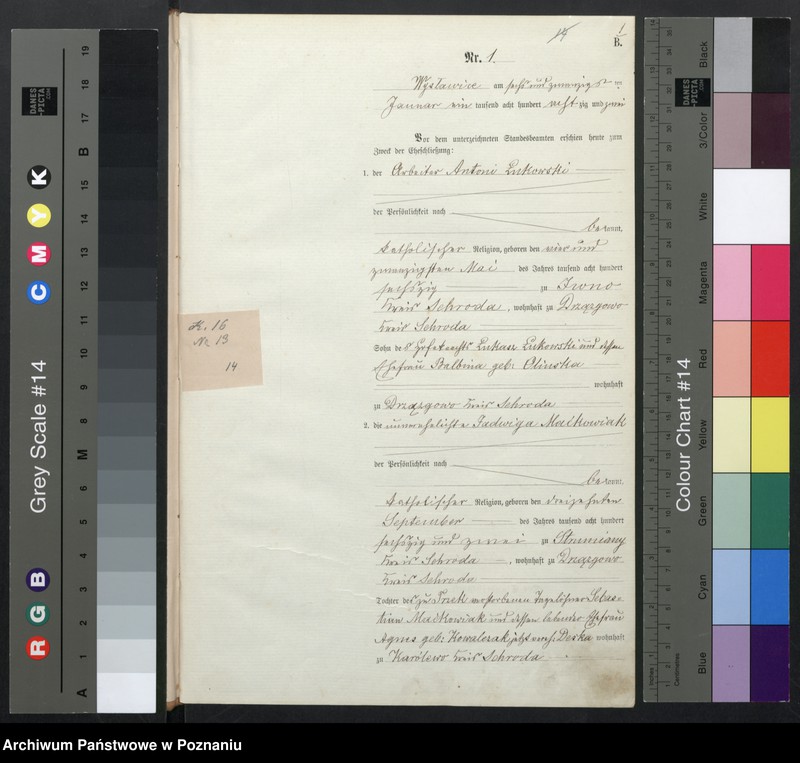 1
B.
Nr. 1.
Wyslawice am sechs und zwanzigsten
Januar ein tausend acht hundert achtzig und zwei
Vor dem unterzeichneten Standesbeamten erschien heute zum
Zweck der Eheschließung:
1. der Arbeiter Antoni Lukowski
der Persönlichkeit nach
bekannt,
katholischer Religion, geboren den vier und
zwanzigsten Mai des Jahres tausend acht hundert
sechszig zu Iwno
Kreis Schroda, wohnhaft zu Drzązgowo
Kreis Schroda
Sohn des Hofeknechts Lukasz Lukowski und dessen
Ehefrau Balbina geb: Olinska
wohnhaft
zu Drzązgowo Kreis Schroda
2. die unverehelichte Jadwiga Maćkowiak
der Persönlichkeit nach
bekannt,
katholischer Religion, geboren den dreizehnten
September des Jahres tausend acht hundert
sechszig und zwei zu Strumiany
Kreis Schroda, wohnhaft zu Drzązgowo
Kreis Schroda
Tochter des zu verstorbenen Tagelöhner Sebas-
tian Maćkowiak und dessen lebender Ehefrau
Agnes geb: Kowalczak jetzt verehl. Deska wohnhaft
zu Karólewo Kreis Schroda
K. 16
Nr. 13
14
Grey Scale #14
DANES
-PICTA
.COM
A 1 2 3 4 5 6 M 8 9 10 11 12 13 14 15 B 17 18 19
R G B
C M Y K
Colour Chart #14
DANES
-PICTA
.COM
Black
3/Color
White
Magenta
Red
Yellow
Green
Cyan
Blue
Inches
Centimetres
Archiwum Państwowe w Poznaniu